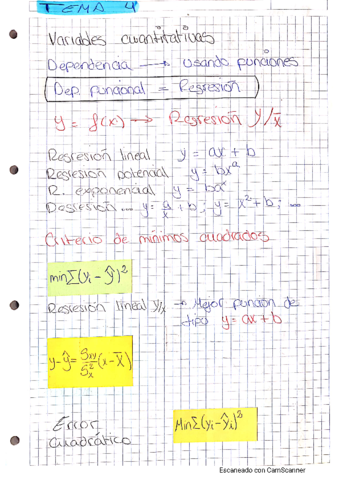 TEMA 4
Variables cuantitativas
Dependencia → usando funciones
Dep. funcional = Regresión
y = f(x) → Regresión y/x
Regresión lineal y = ax + b
Regresión potencial y = bx^a
R. exponencial y = ba^x
Regresión ... y = a/x + b ; y = x² + b ; ...
Criterio de mínimos cuadrados
min Σ(yi - ŷ)²
Regresión lineal y/x → Mejor función de
tipo y = ax + b
y - ŷ = Sxy/Sx² (x - x̄)
Error
cuadrático
Min Σ(yi - ŷi)²
Escaneado con CamScanner